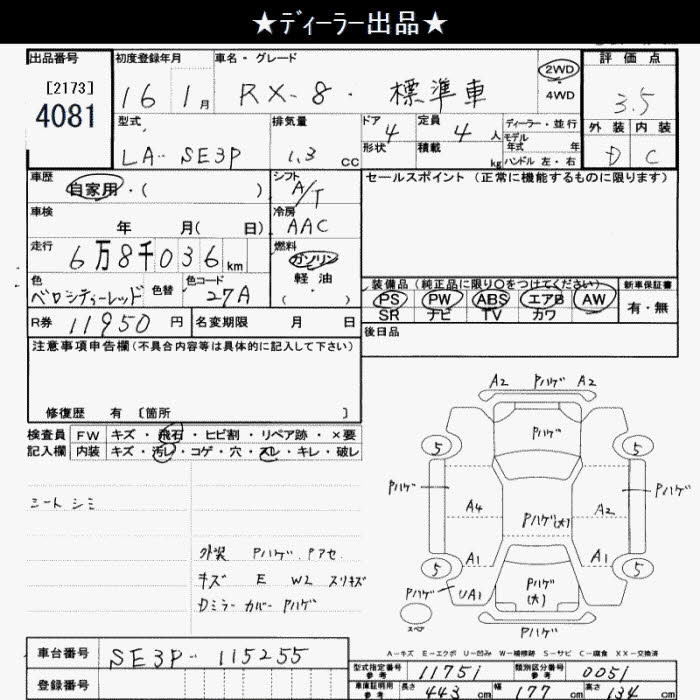 ★ディーラー出品★
出品番号
[2173]
4081
初度登録年月
16 1月
車名・グレード
RX-8. 標準車
2WD
4WD
評価点
3.5
外装 内装
D C
型式
LA- SE3P
排気量
1.3 cc
ドア 4
形状
定員 4 人
積載 kg
ディーラー・並行
モデル
年式 年
ハンドル 左・右
車歴
自家用・( )
シフト
A/T
セールスポイント (正常に機能するものに限ります)
車検
年 月( 日)
冷房
AAC
走行
6万8千036 km
燃料
ガソリン
軽油
( )
色
ベロシティーレッド
色替
色コード
27A
装備品 (純正品に限り○をつけてください)
PS PW ABS エアB AW
SR ナビ TV カワ
新車保証書
有・無
R券 11950 円
名変期限 月 日
後日品
注意事項申告欄(不具合内容等は具体的に記入して下さい)
修復歴 有 [箇所 ]
検査員 FW キズ・飛石・ヒビ割・リペア跡・×要
記入欄 内装 キズ・汚レ・コゲ・穴・スレ・キレ・破レ
シート シミ
外装 Pハゲ. Pアセ.
キズ E W2 スリキズ
Dミラーカバー Pハゲ
A2 Pハゲ A2
Pハゲ
5 5
Pハゲ Pハゲ
A4 Pハゲ(大) A2
A1 A1
5 5
Pハゲ UA1 Pハゲ(大)
スペア
Pハゲ
A-キズ E-エクボ U-凹み W-補修跡 S-サビ C-腐食 XX-交換済
車台番号 SE3P- 115255
登録番号
型式指定番号 参考 11751
類別区分番号 参考 0051
車庫証明用 参考 長さ 443 cm 幅 177 cm 高さ 134 cm